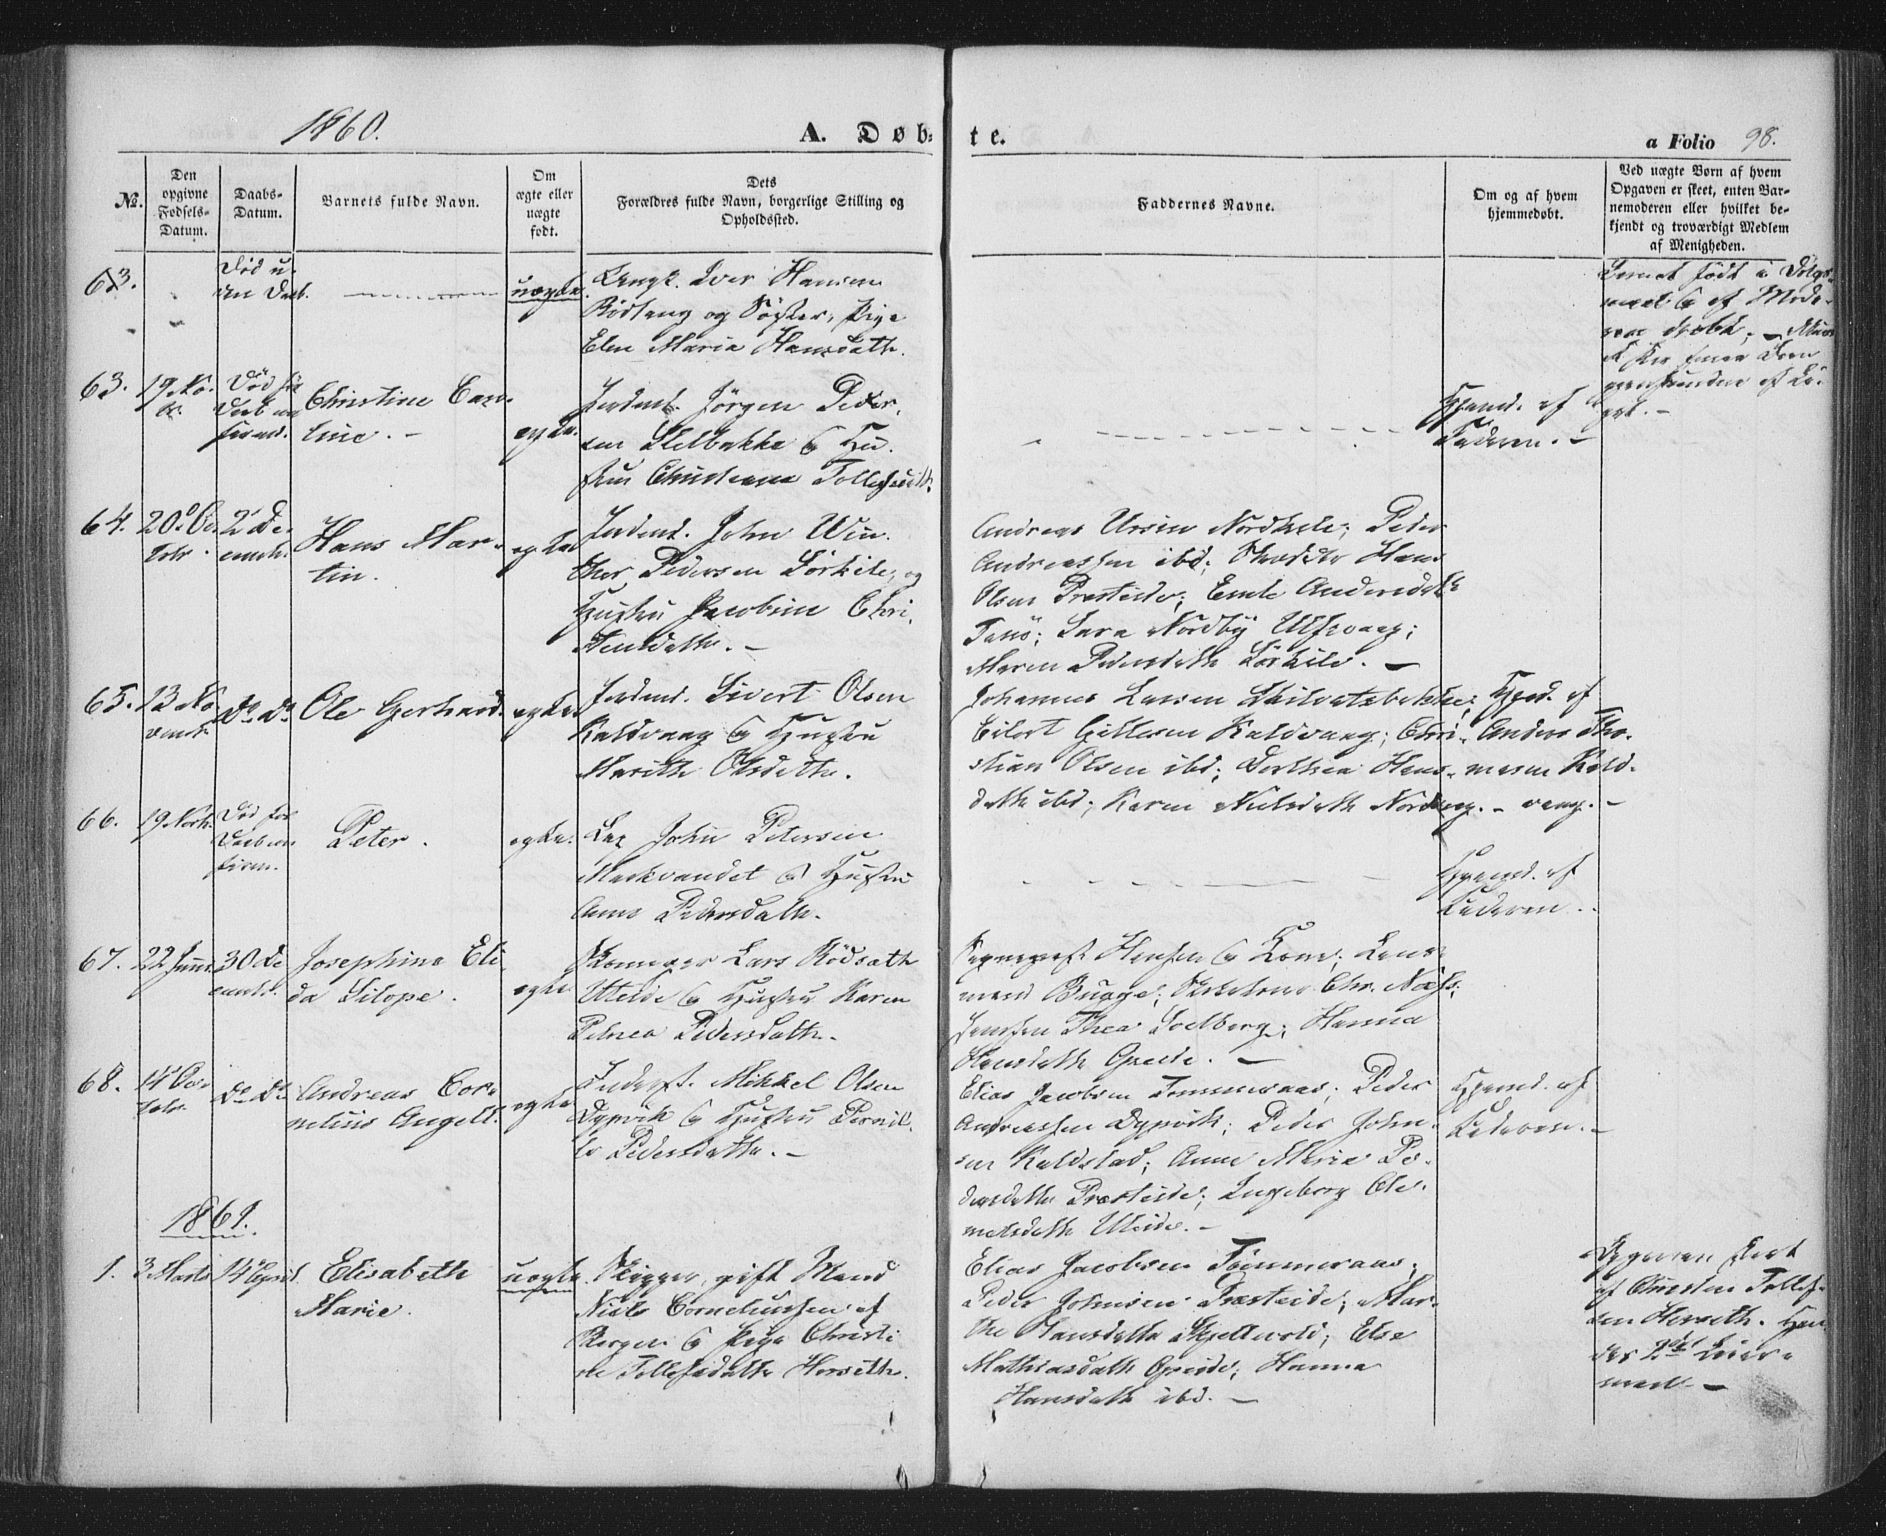 1860.
A. Døb-
te.
a Folio 98.
№.
Den
opgivne
Fødsels-
Datum.
Daabs-
Datum.
Barnets fulde Navn.
Om
ægte eller
uægte
født.
Dets
Forældres fulde Navn, borgerlige Stilling og
Opholdssted.
Faddernes Navne.
Om og af hvem
hjemmedøbt.
Ved uægte Børn af hvem
Opgaven er skeet, enten Bar-
nemoderen eller hvilket be-
kjendt og troværdigt Medlem
af Menigheden.
63.
Død u-
den Daab.
uægte.
Ungk. Iver Hansen
Rødtang og Søster, Pige
Elen Maria Hansdatr.
født i Dolgs-
maal & af Mode-
ren dræbt. -
63.
19 No-
Død før
Daab
Christine Car-
line. -
ægte.
Indent. Jörgen Peder-
sen Stelbakke & Hu-
stru Christiana Tollefsdatr.
Hjemd. af
Faderen. -
64.
20 Oc-
tobr.
2 De-
cembr.
Hans Mar-
tin.
ægte
Inderst. John Win-
ther Pedersen Sörkile, og
Hustru Jacobine Chri-
stensdatter. -
Andreas Ursin Nordkile; Peder
Andreassen ibd; Hans
Olsen Præsteide; Emte Andersdatr
Tenö; Sara Nordby Ulfsvaag;
Maren Pedersdatr Sörkile. -
65.
13 No-
vembr.
Do. Do.
Ole Gerhard.
ægte.
Inderst. Sivert Olsen
Kaldvaag & Hustru
Marith Olsdattr.
Johannes Larsen
Eilert Gjettesen Kaldvaag; Chri-
stian Olsen ibd; Dorthea Hans-
datr ibd; Karen Nielsdatr
Hjemd. af
Anders Tho-
masen Kald-
vaag. -
66.
19 Novb.
Død før
Daaben
Peter.
ægte.
John Petersen
Markvandet & Hustru
Anne Pedersdatr.
Hjemmd. af
Faderen.
67.
22 Juni
30 De-
cembr.
Josephine Eli-
da Silope.
ægte
Lars Rödsæth
Uteide & Hustru Karen
Petrea Pedersdattr.
Hansen & Kone; Lens-
mand Bugge; Chr. Næss;
Thea Soelberg; Hanna
Hansdattr
68.
14 Oc-
tobr.
Do. Do.
Andreas Cor-
nelius Angell.
ægte
Inderst. Mikkel Olsen
Dypvik & Hustru Pernil-
le Pedersdatter. -
Elias Jacobsen Tömmeraas; Peder
Andreassen Dypvik; Peder John-
sen Kaldstad; Anne Maria Pe-
dersdatter Præsteide; Ingeborg Cle-
metsdatr Uteide. -
Hjemd. af
Faderen. -
1861.
1.
3 Marts
14 April.
Elisabeth
Marie.
uægte
Skipper, gift Mand
Niels Corneliussen af
Bergen & Pige Christi-
ne Tollefsdatter Horseth.
Elias Jacobsen Tömmeraas;
Peder Johnsen Præsteide; Mar-
the Hansdatter Else
Mathiasdatr Hanna
Hansdatr ibd. -
Opgaven skeet
af Christen Tollef-
sen Horseth. Hen-
des 2det Leier-
maal. -